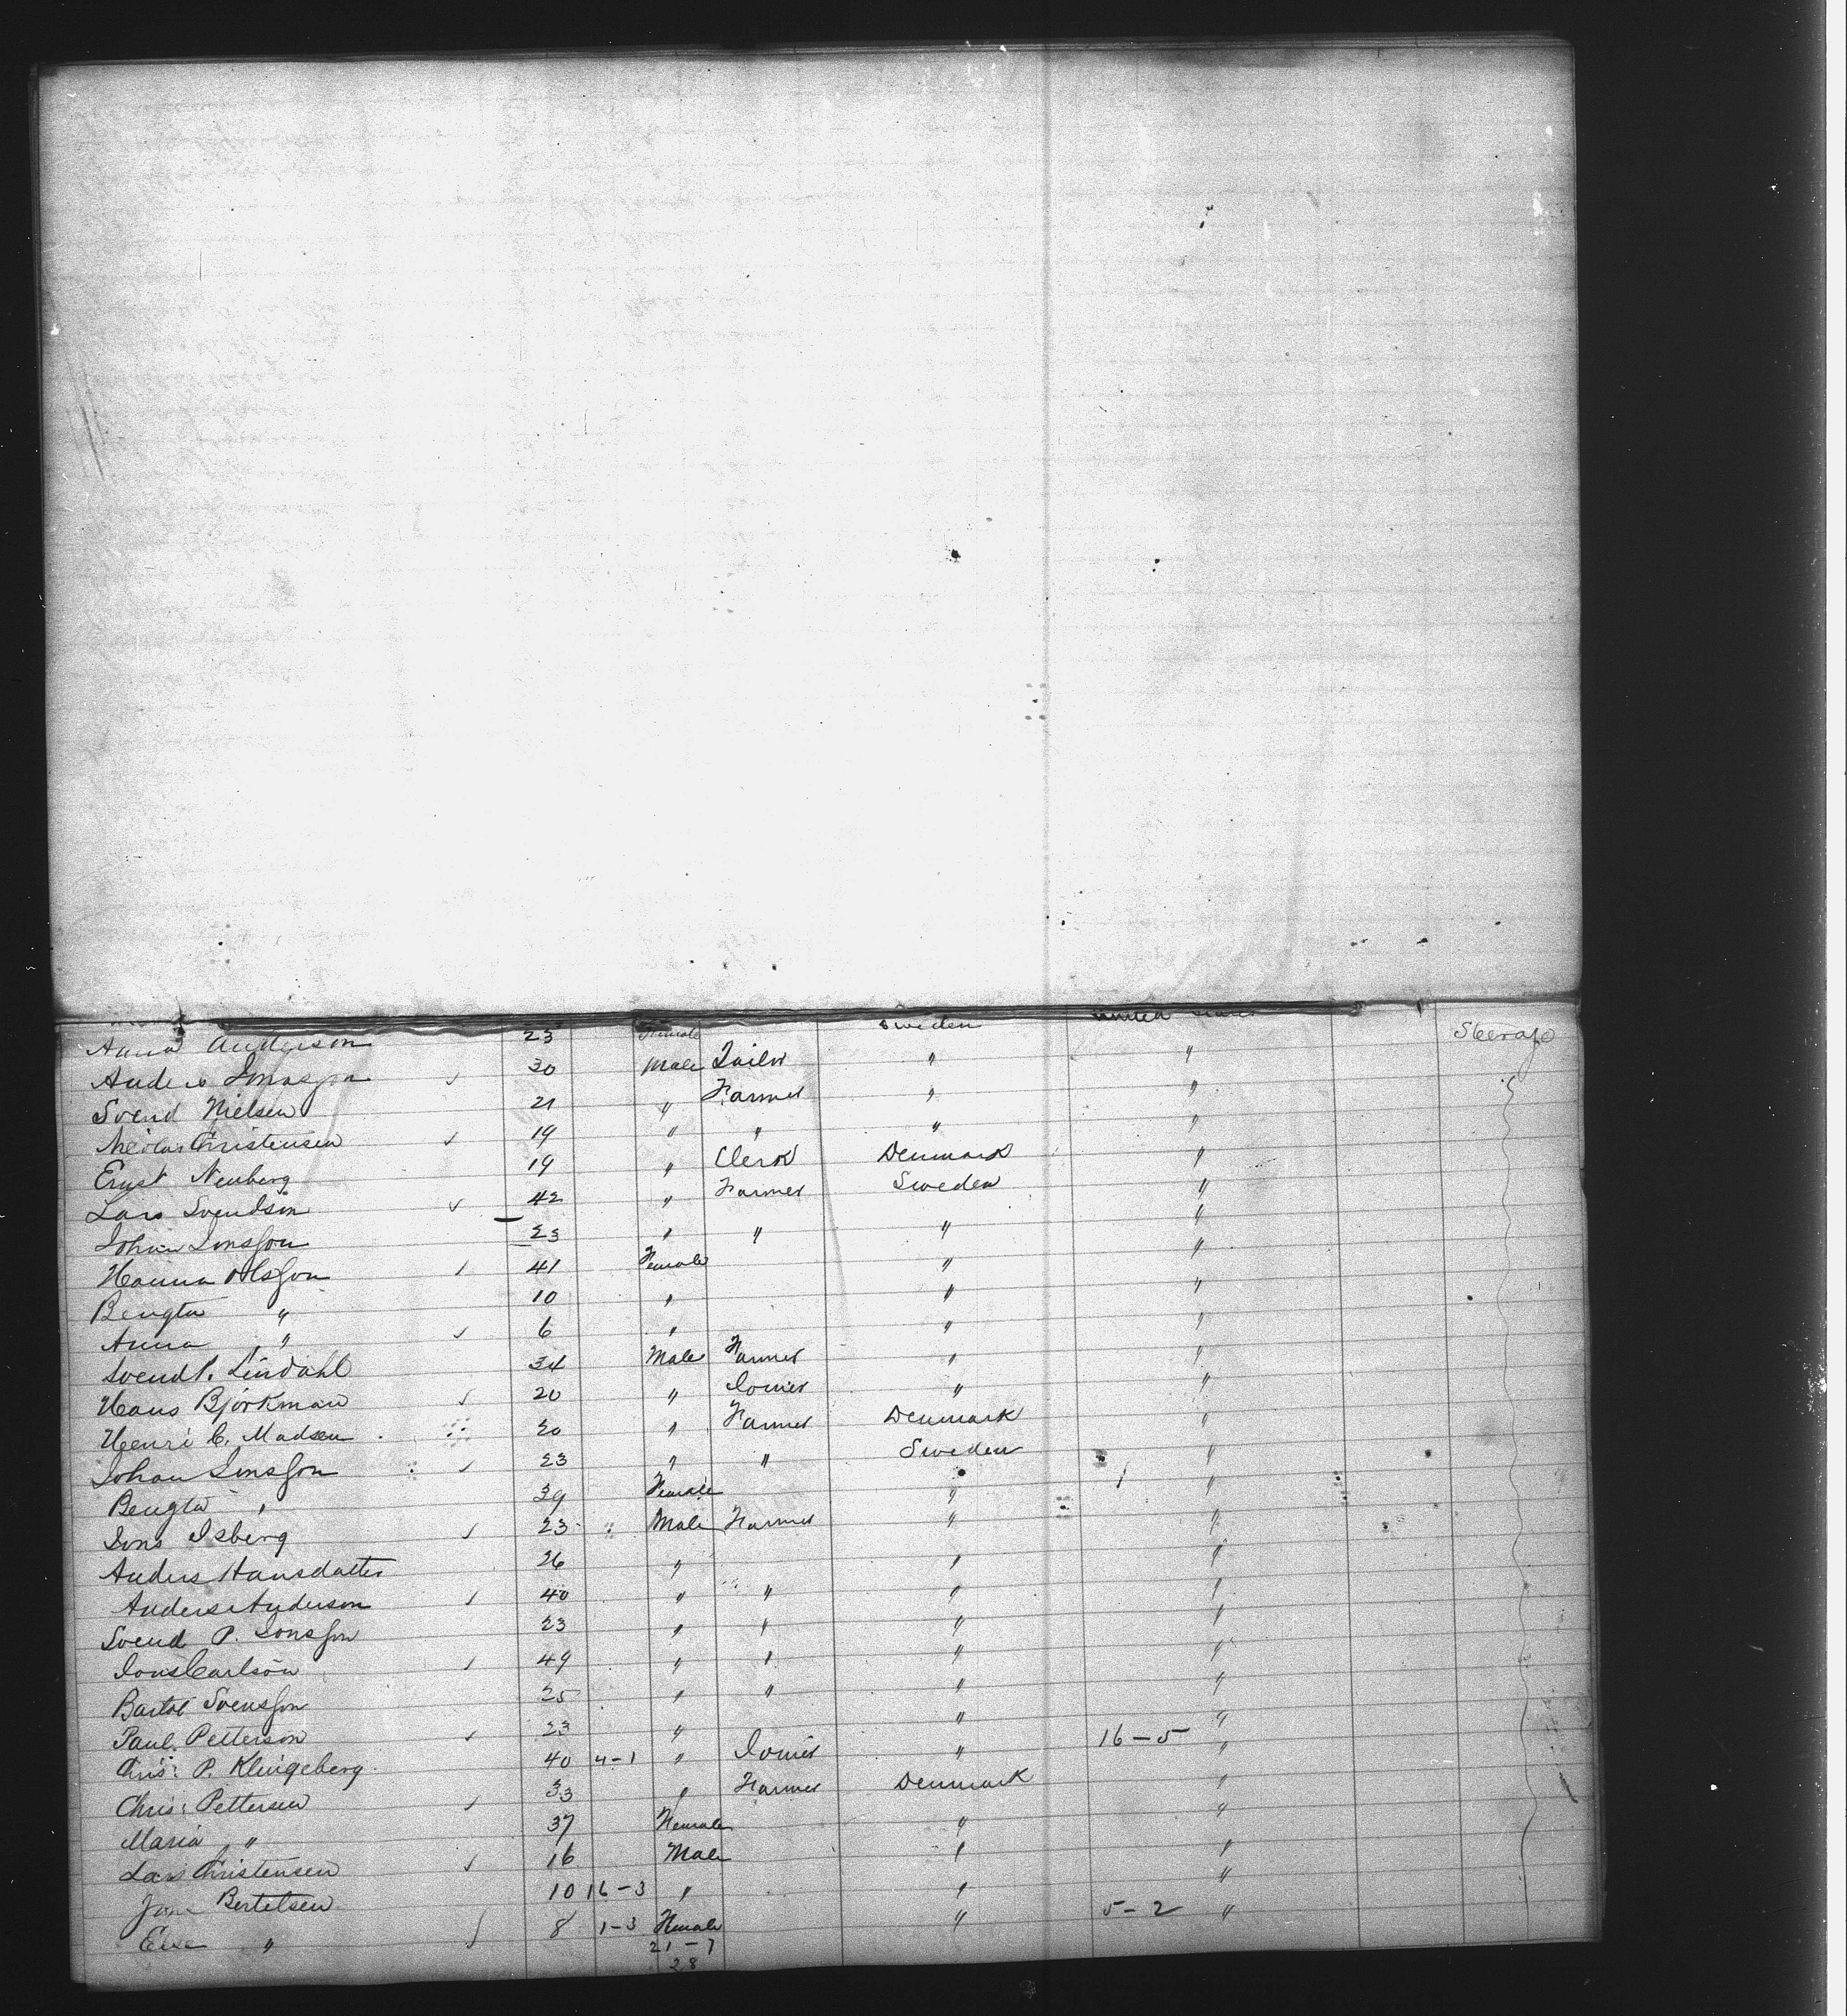 Anna Anderson 23 Female Sweden United States Steerage
Anders Jonasson 30 Male Tailor " "
Svend Nielsen 21 " Farmer " "
Christensen 19 " " " "
Ernst Neuberg 19 " Clerk Denmark "
Lars Svendson 42 " Farmer Sweden "
Johan Jonsson 23 " " " "
Hanna Olsson 41 Female " "
Bengta " 10 " " "
Anna " 6 " " "
Svend P. Lindahl 34 Male Farmer " "
Hans Björkman 20 " Joiner " "
Henri C. Madsen 20 " Farmer Denmark "
Johan Jonsson 23 " " Sweden "
Bengta " 39 Female " "
Jons Isberg 23 Male Farmer " "
Anders Hansdatter 26 " " "
Anders Anderson 40 " " " "
Svend P. Jonsson 23 " " " "
Jons Carlson 49 " " " "
Bartol Svensson 25 " " " "
Paul Petterson 23 " " "
Chris: P. Klingeberg 40 4-1 " Joiner " 16-5 "
Chris: Pettersen 33 " Farmer Denmark "
Maria " 37 Female " "
Lars Christensen 16 Male " "
Bertelsen 10 16-3 " " "
Else " 8 1-3 Female " 5-2 "
21-7
28